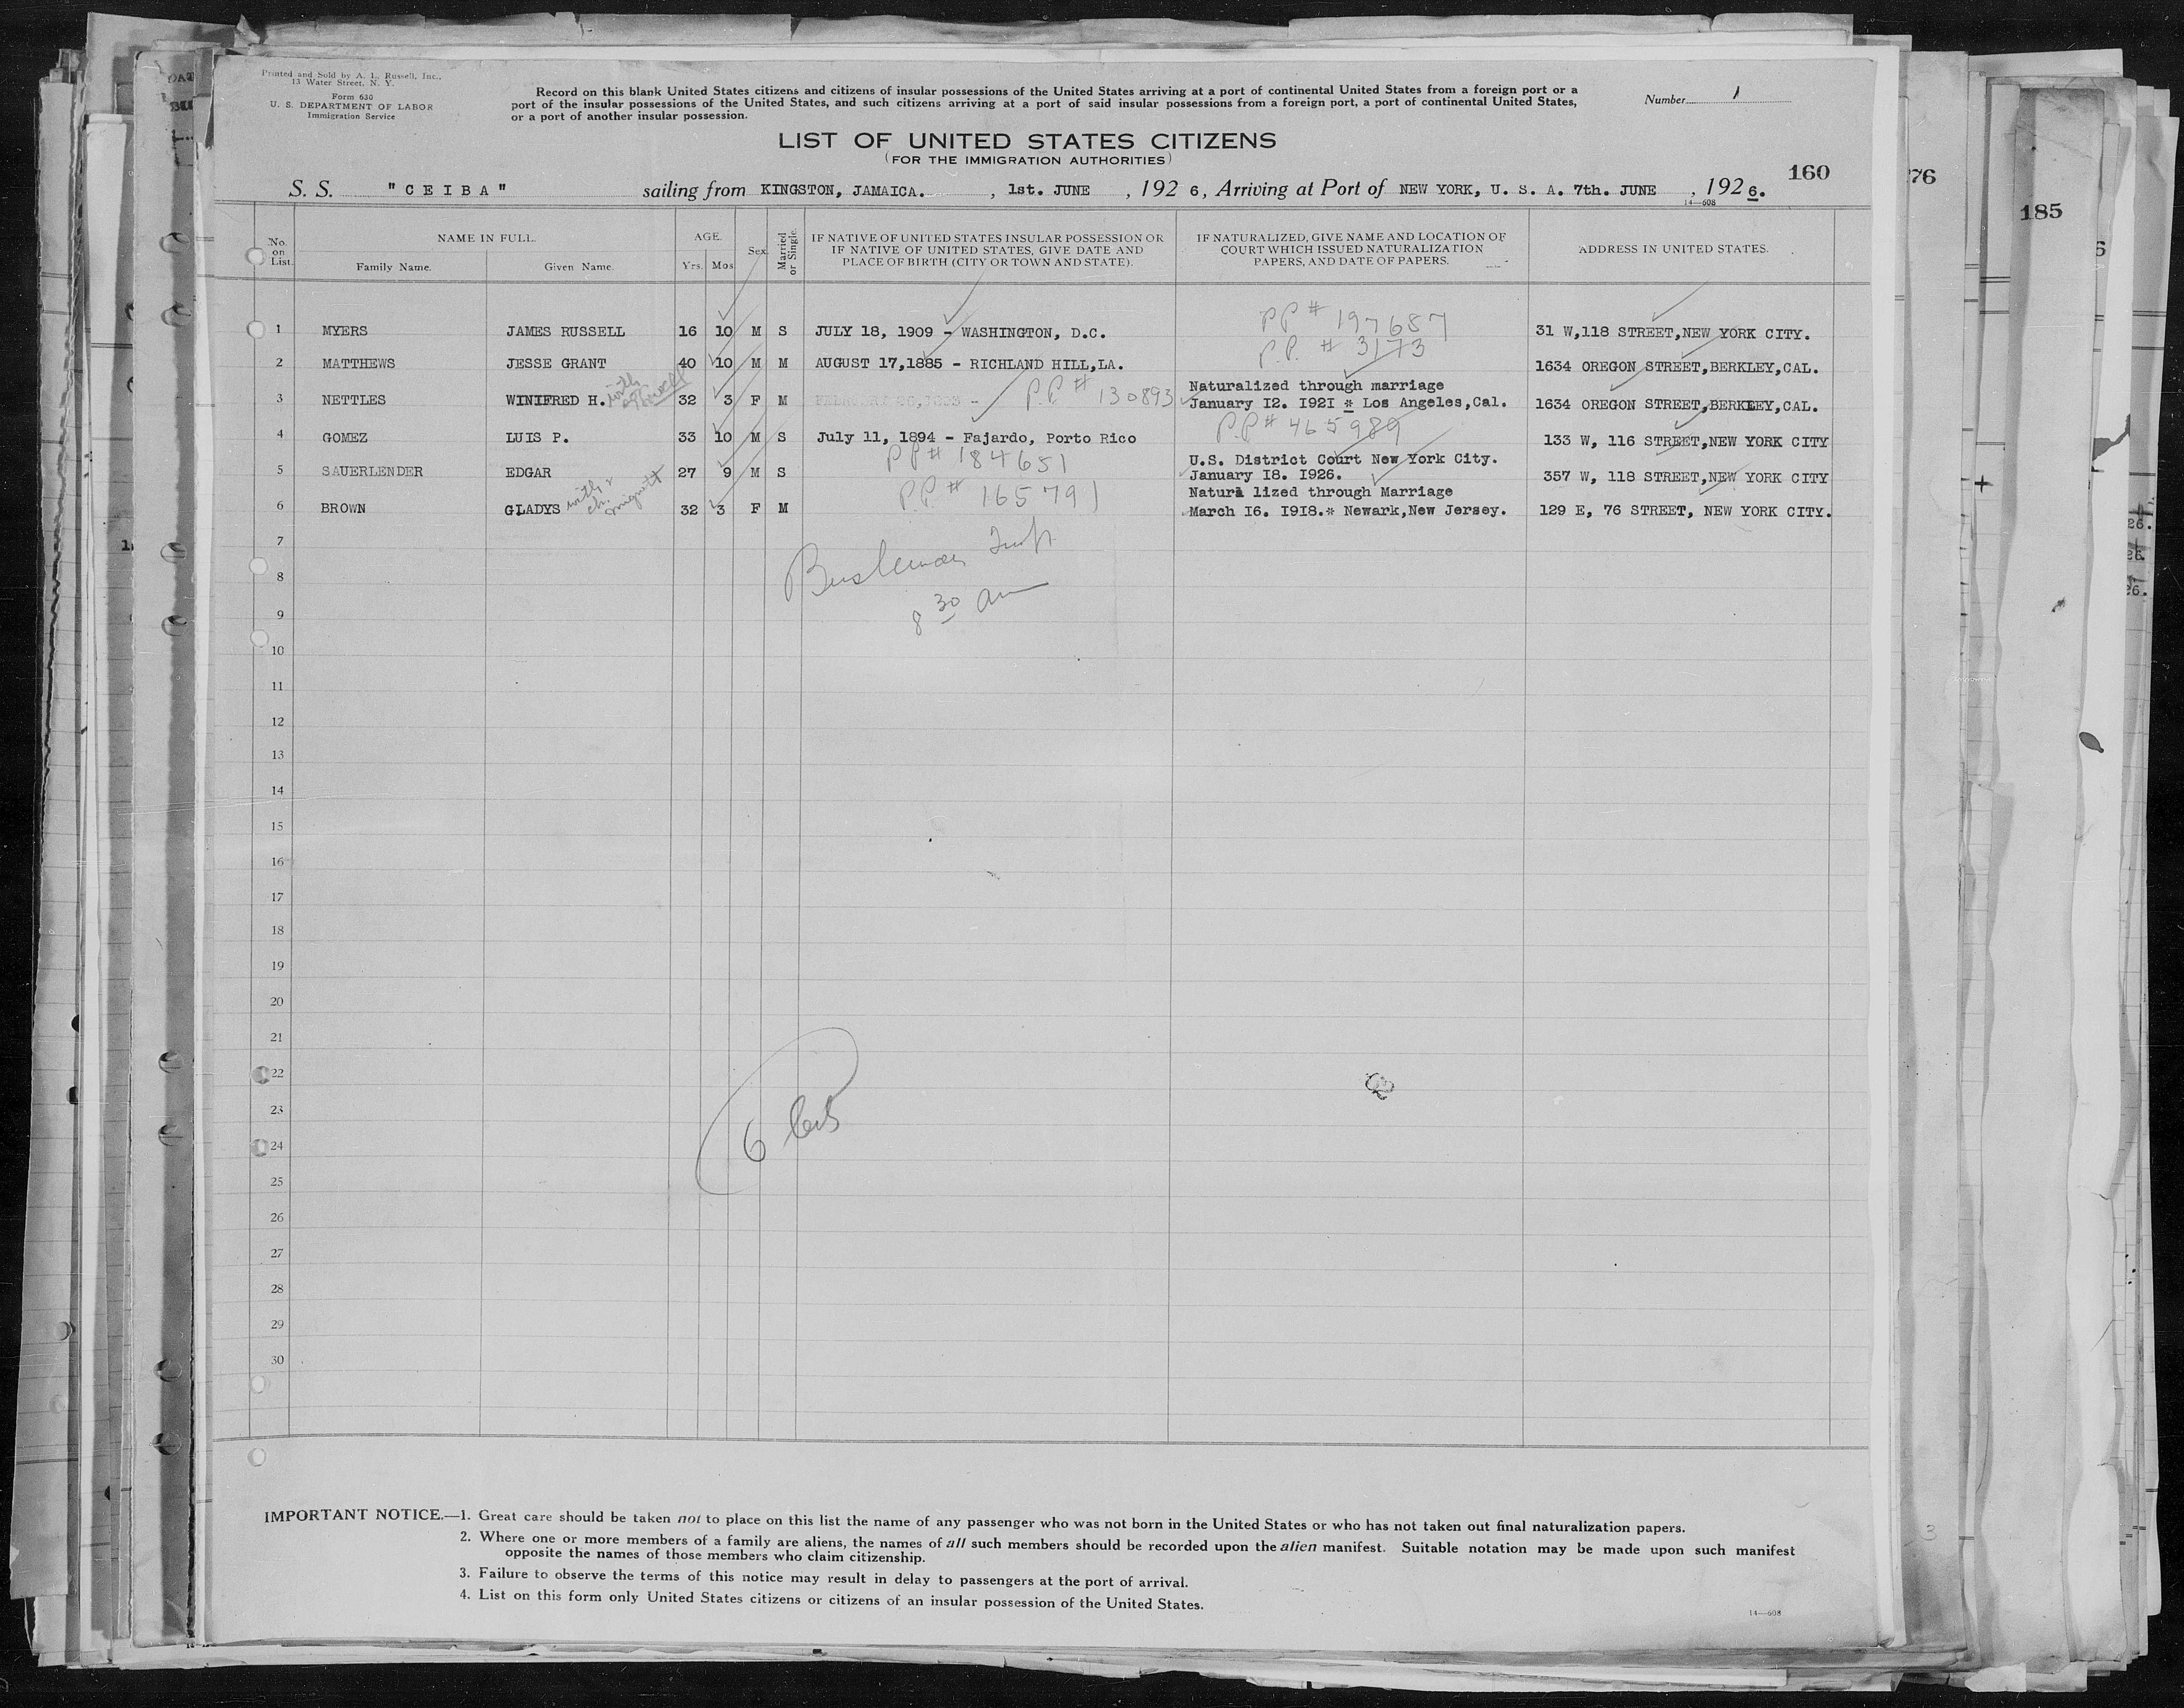 Printed and Sold by A. L. Russell, Inc.,
13 Water Street, N. Y.
Form 630
U. S. DEPARTMENT OF LABOR
Immigration Service
Record on this blank United States citizens and citizens of insular possessions of the United States arriving at a port of continental United States from a foreign port or a
port of the insular possessions of the United States, and such citizens arriving at a port of said insular possessions from a foreign port, a port of continental United States,
or a port of another insular possession.
Number 1
LIST OF UNITED STATES CITIZENS
(FOR THE IMMIGRATION AUTHORITIES)
160
S. S. "CEIBA" sailing from KINGSTON, JAMAICA. , 1st. JUNE , 192 6, Arriving at Port of NEW YORK, U. S. A. 7th. JUNE , 192 6.
14—608
No. on List. NAME IN FULL. Family Name. Given Name. AGE. Yrs. Mos. Sex. Married or Single.
IF NATIVE OF UNITED STATES INSULAR POSSESSION OR
IF NATIVE OF UNITED STATES, GIVE DATE AND
PLACE OF BIRTH (CITY OR TOWN AND STATE).
IF NATURALIZED, GIVE NAME AND LOCATION OF
COURT WHICH ISSUED NATURALIZATION
PAPERS, AND DATE OF PAPERS.
ADDRESS IN UNITED STATES.
PP # 197687
1 MYERS JAMES RUSSELL 16 10 M S JULY 18, 1909 - WASHINGTON, D.C. 31 W,118 STREET,NEW YORK CITY.
P.P. # 3173
2 MATTHEWS JESSE GRANT 40 10 M M AUGUST 17,1885 - RICHLAND HILL,LA. 1634 OREGON STREET,BERKLEY,CAL.
Naturalized through marriage
3 NETTLES WINIFRED H. with 32 3 F M - P.P. # 130893 January 12. 1921 * Los Angeles,Cal. 1634 OREGON STREET,BERKLEY,CAL.
P.P # 465989
4 GOMEZ LUIS P. 33 10 M S July 11, 1894 - Fajardo, Porto Rico 133 W, 116 STREET,NEW YORK CITY
PP # 184651 U.S. District Court New York City.
5 SAUERLENDER EDGAR 27 9 M S January 18. 1926. 357 W, 118 STREET,NEW YORK CITY
P.P. # 165791 Natura lized through Marriage
6 BROWN GLADYS with 32 3 F M March 16. 1918.* Newark,New Jersey. 129 E, 76 STREET, NEW YORK CITY.
7
8
8 30 am
9
10
11
12
13
14
15
16
17
18
19
20
21
22
23
6
24
25
26
27
28
29
30
IMPORTANT NOTICE.—1. Great care should be taken not to place on this list the name of any passenger who was not born in the United States or who has not taken out final naturalization papers.
2. Where one or more members of a family are aliens, the names of all such members should be recorded upon the alien manifest. Suitable notation may be made upon such manifest
opposite the names of those members who claim citizenship.
3. Failure to observe the terms of this notice may result in delay to passengers at the port of arrival.
4. List on this form only United States citizens or citizens of an insular possession of the United States.
14—608
76
185